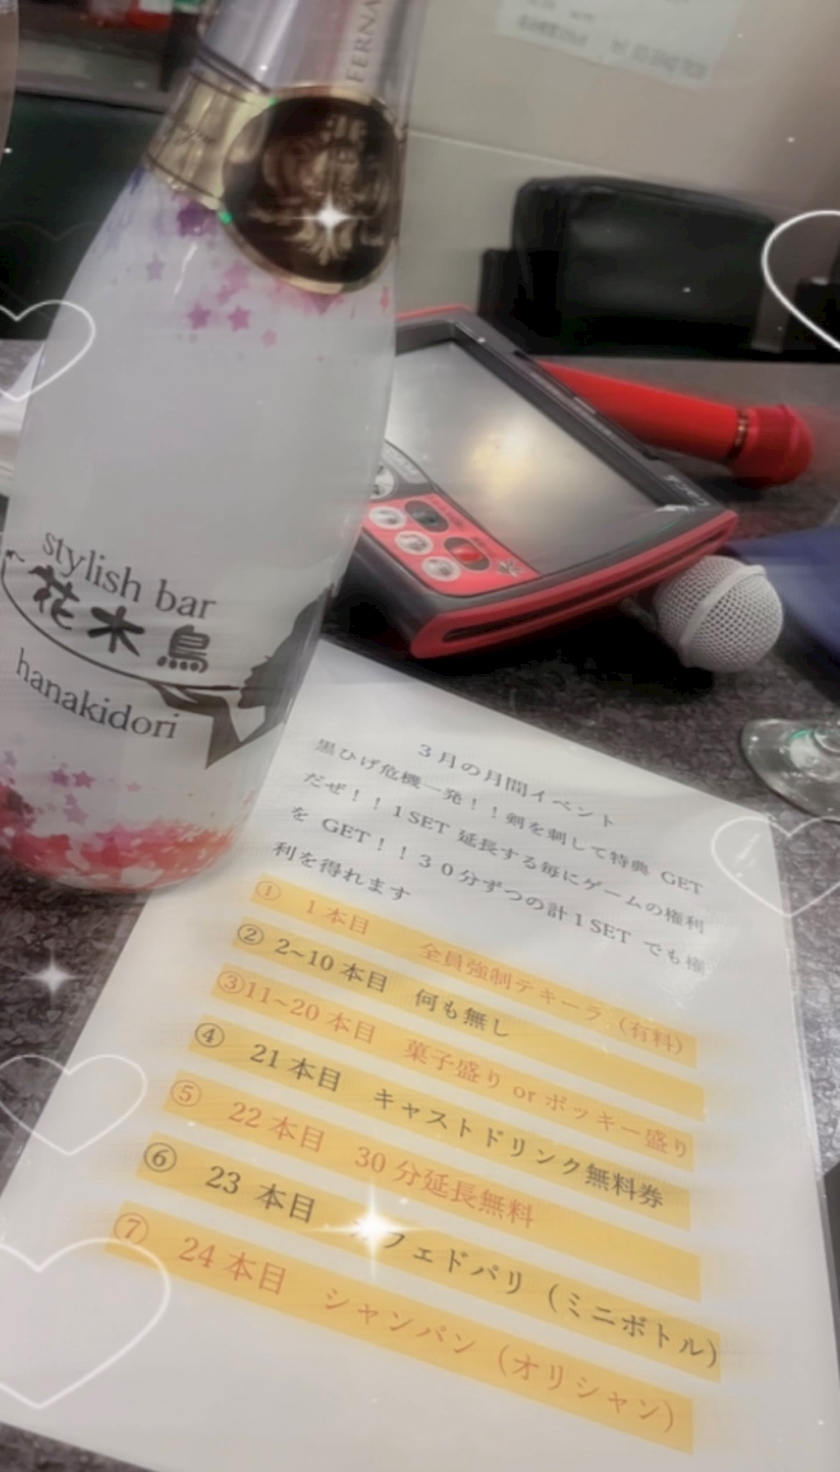 FERNA
stylish bar
花木鳥
hanakidori
3月の月間イベント
黒ひげ危機一発！！剣を刺して特典 GET
だぜ！！1SET 延長する毎にゲームの権利
を GET！！３０分ずつの計１SET でも権
利を得れます
① 1本目 全員強制テキーラ（有料）
② 2~10 本目 何も無し
③11~20 本目 菓子盛り or ポッキー盛り
④ 21 本目 キャストドリンク無料券
⑤ 22 本目 30 分延長無料
⑥ 23 本目 フェドパリ（ミニボトル）
⑦ 24 本目 シャンパン（オリシャン）